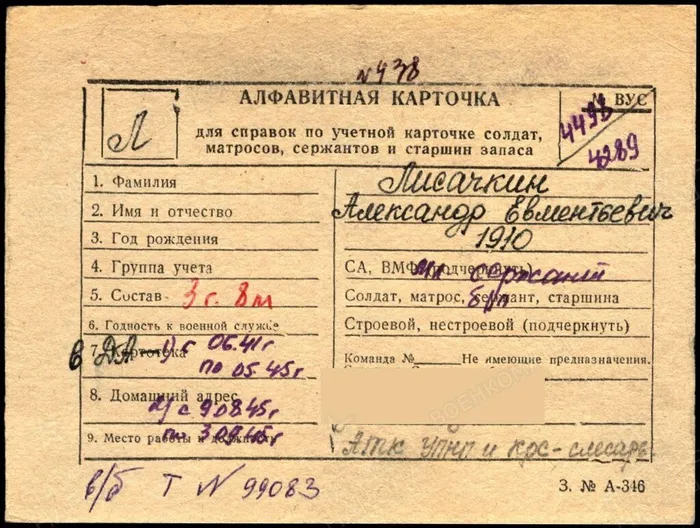 N 438
АЛФАВИТНАЯ КАРТОЧКА
ВУС
449
4289
Л
для справок по учетной карточке солдат,
матросов, сержантов и старшин запаса
1. Фамилия Лисачкин
2. Имя и отчество Александр Евментьевич
3. Год рождения 1910
4. Группа учета СА, ВМФ (подчеркнуть) мл. сержант
5. Состав 3 г. 8 м Солдат, матрос, сержант, старшина б/п
6. Годность к военной службе Строевой, нестроевой (подчеркнуть)
7. Картотека Команда № Не имеющие предназначения.
в ДА 1) с 06.41г
по 05.45г
8. Домашний адрес
2) с 9.08.45г
9. Место работы и должность АТК УПНП и КРС - слесарь
по 3.09.45г
в/б Т N 99083
З. № А-346